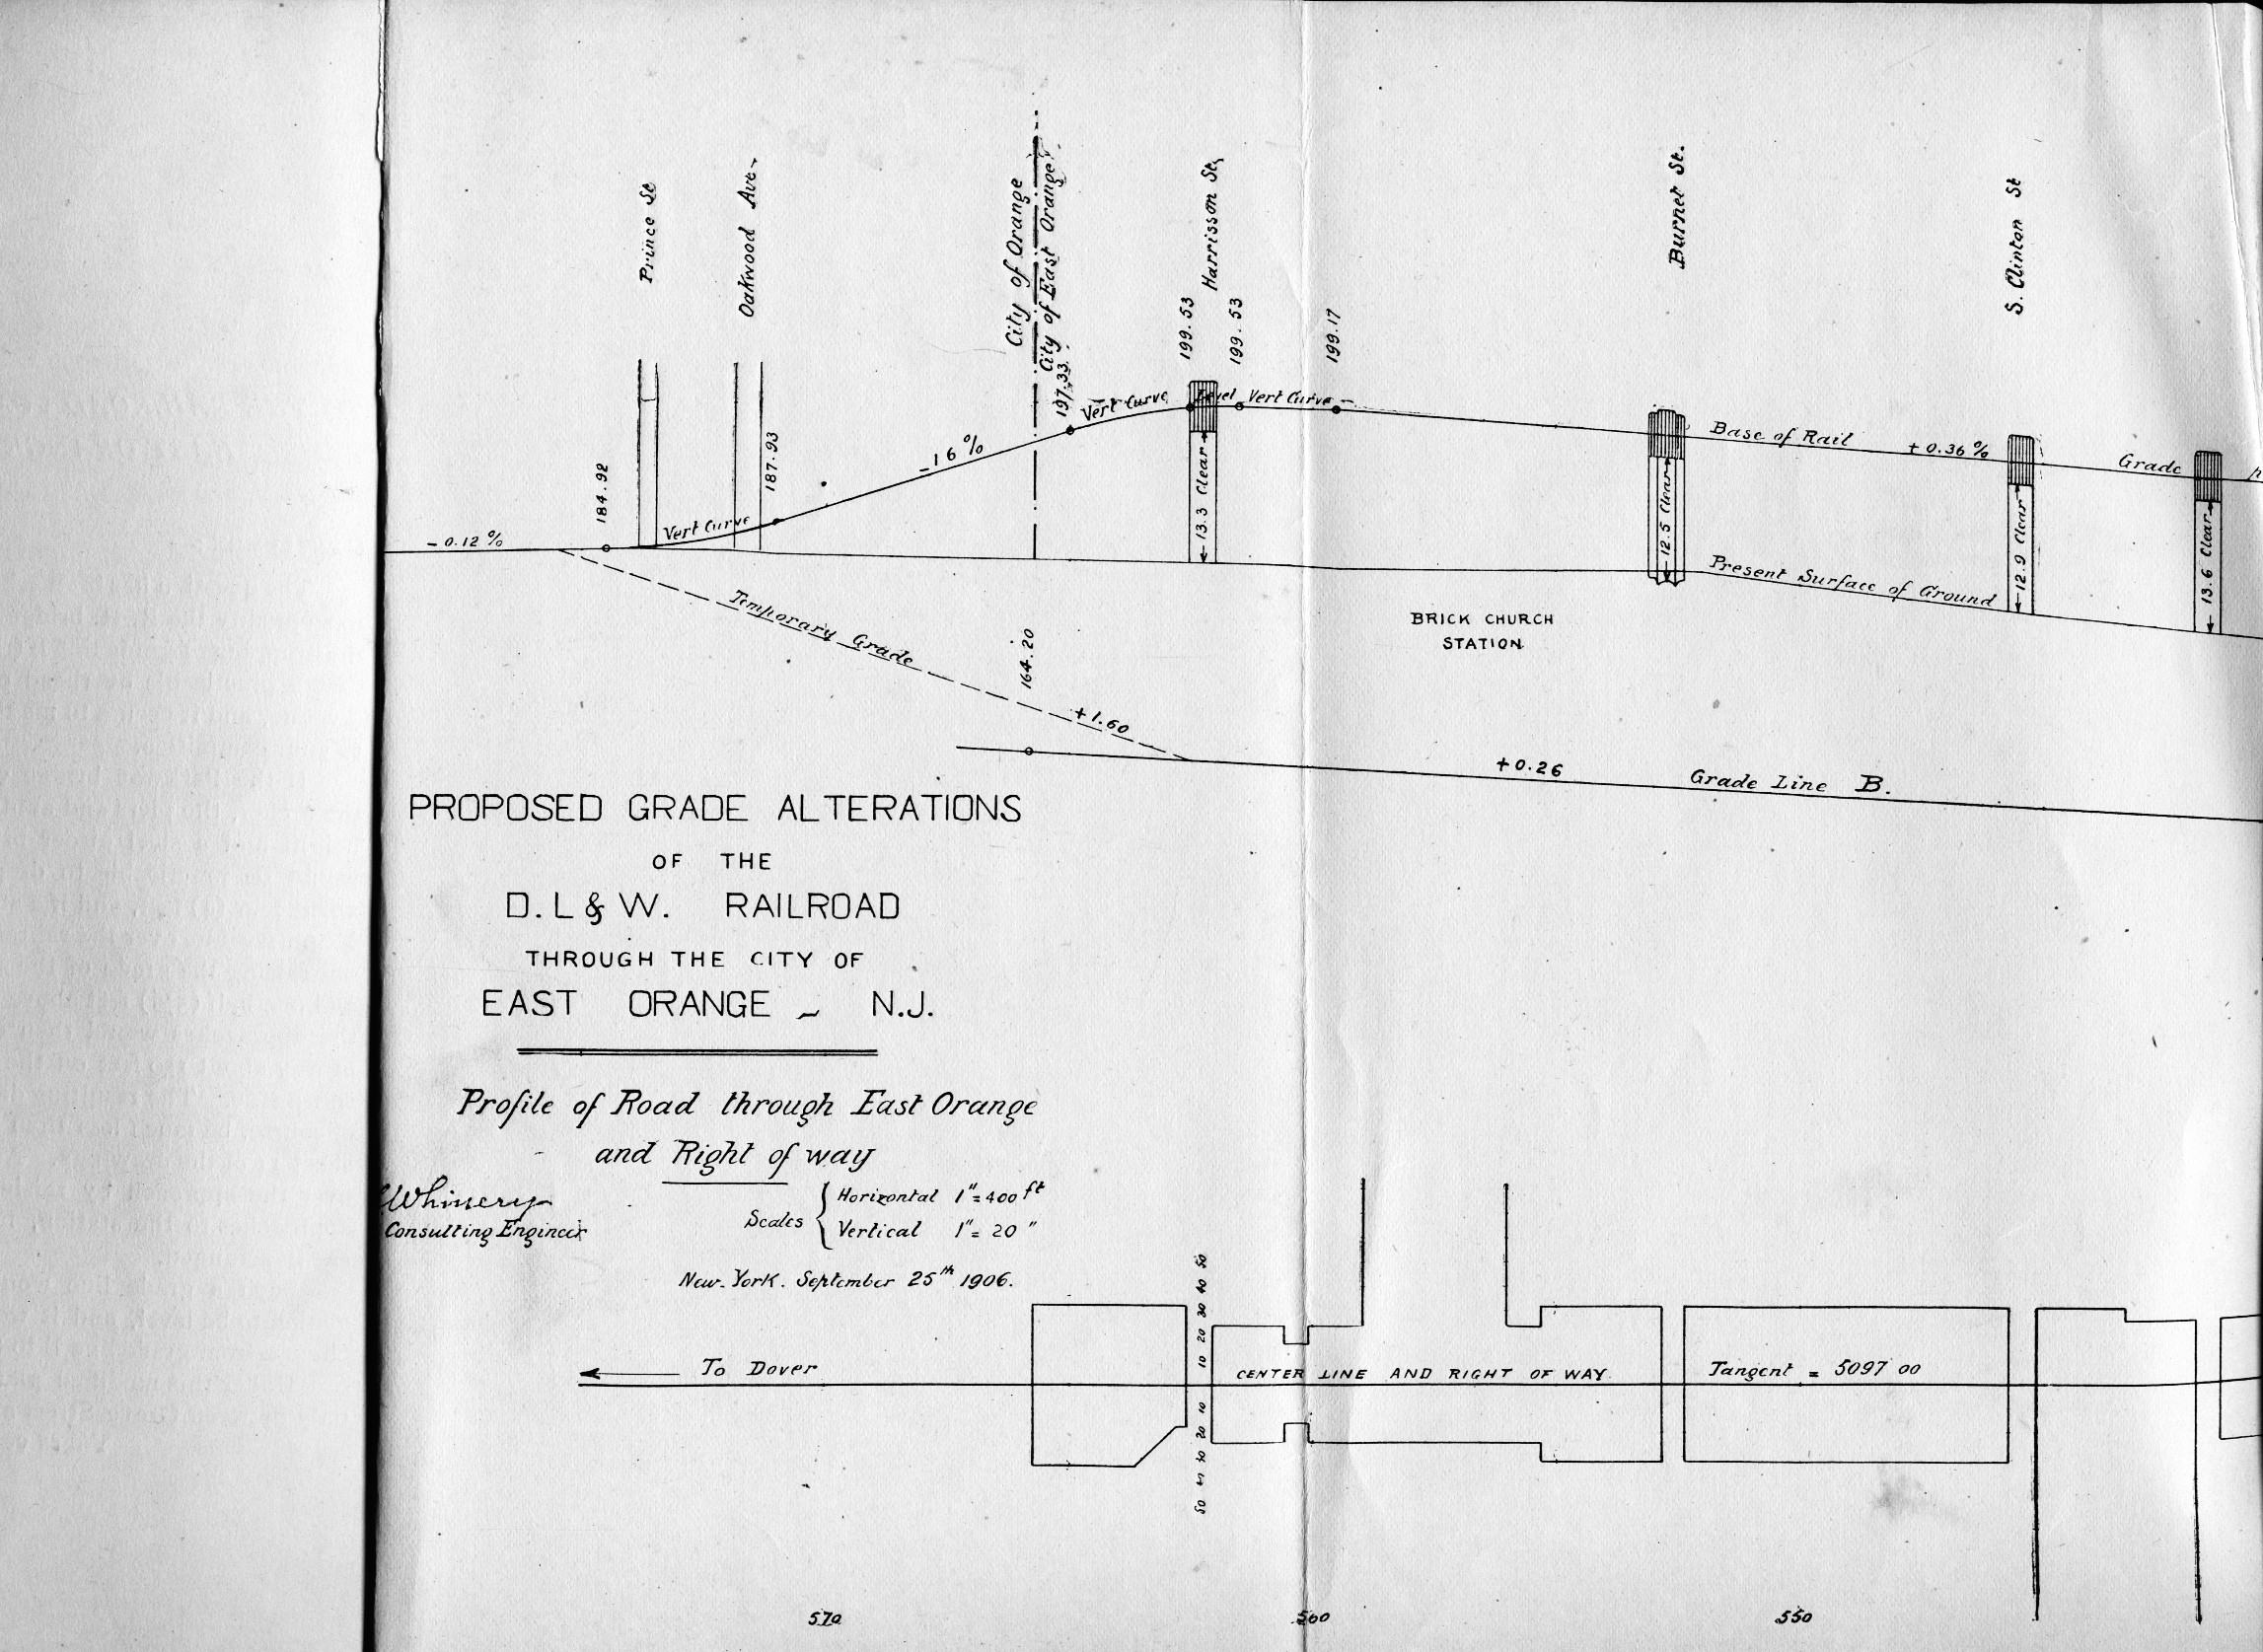 Prince St
Oakwood Ave
City of Orange
City of East Orange
Harrisson St.
Burnet St.
S. Clinton St
184.92
187.93
197.33
199.53
199.53
199.17
- 0.12 %
Vert Curve
- 1 6 %
Vert Curve
Level
Vert Curve
Base of Rail
+ 0.36 %
Grade
13.3 Clear
12.5 Clear
12.9 Clear
13.6 Clear
Present Surface of Ground
Temporary Grade
164.20
+ 1.60
BRICK CHURCH
STATION
+ 0.26
Grade Line B.
PROPOSED GRADE ALTERATIONS
OF THE
D. L & W. RAILROAD
THROUGH THE CITY OF
EAST ORANGE - N.J.
Profile of Road through East Orange
and Right of way
Whinery
Consulting Engineer
Scales
Horizontal 1" = 400 ft
Vertical 1" = 20 "
New-York. September 25th 1906.
50 40 30 20 10
10 20 30 50
To Dover
CENTER LINE AND RIGHT OF WAY
Tangent = 5097 00
570
560
550